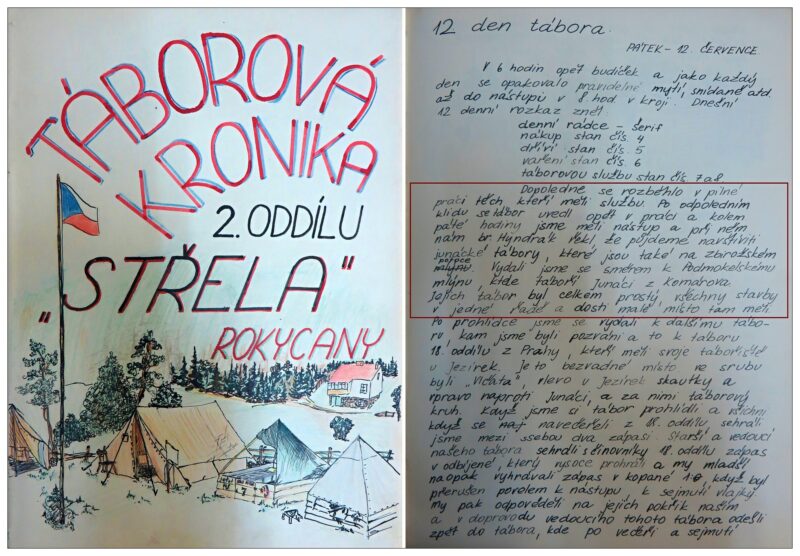 TÁBOROVÁ
KRONIKA
2. ODDÍLU
„STŘELA“
ROKYCANY
12 den tábora.
PÁTEK - 12. ČERVENCE
V 6 hodin opět budíček a jako každý
den se opakovalo pravidelné mytí, snídaně atd.
až do nástupu v 8 hod. v kroji. Dnešní
12 denní rozkaz zněl
denní rádce - Šerif
nákup stan čís. 4
dříví stan čís. 5
vaření stan čís. 6
táborovou službu stan čís. 7 a 8.
Dopoledne se rozběhlo v pilné
práci těch kteří měli službu. Po odpoledním
klidu se tábor uvedl opět v práci a kolem
páté hodiny jsme měli nástup a při něm
nám br. Hyndrák řekl, že půjdeme navštíviti
junácké tábory, které jsou také na zbirožském
potoce
mlýnu. Vydali jsme se směrem k Podmokelskému
mlýnu, kde táboří Junáci z Komárova.
Jejich tábor byl celkem prostý, všechny stavby
v jedné řadě a dosti malé místo tam měli.
Po prohlídce jsme se vydali k dalšímu tábo-
ru, kam jsme byli pozváni a to k táboru
18. oddílu z Prahy, kteří měli svoje tábořiště
u Jezírek. Je to bezvadné místo ve srubu
byli „Vlčata“, vlevo u Jezírek skautky a
vpravo naproti Junáci, a za nimi táborový
kruh. Když jsme si tábor prohlídli a všichni
když se navečeřeli z 18. oddílu, sehráli
jsme mezi ssebou dva zápasi. Starší a vedoucí
našeho tábora sehrdli s činovníky 18. oddílu zápas
v odbíjené, který vysoce prohráli a my mladší
naopak vyhrdvali zápas v kopané 1:0, když byl
přerušen povelem k nástupu k sejmutí vlajky.
My pak odpověděli na jejich pokřik naším
a v doprovodu vedoucího tohoto tábora odešli
zpět do tábora, kde po večeři a sejmutí